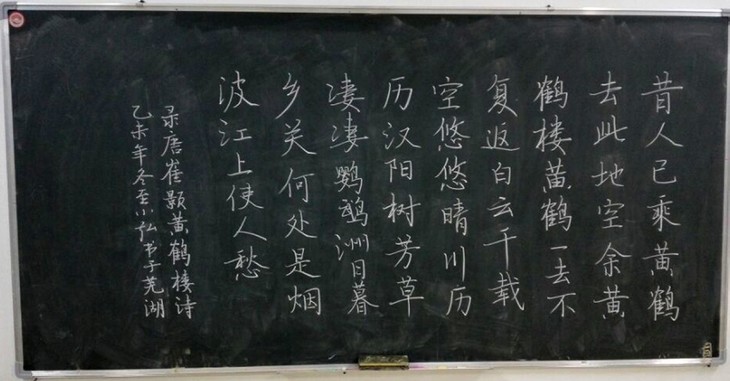 昔人已乘黄鹤
去此地空余黄
鹤楼黄鹤一去不
复返白云千载
空悠悠晴川历
历汉阳树芳草
凄凄鹦鹉洲日暮
乡关何处是烟
波江上使人愁
录唐崔颢黄鹤楼诗
乙未年冬至小弘书于芜湖